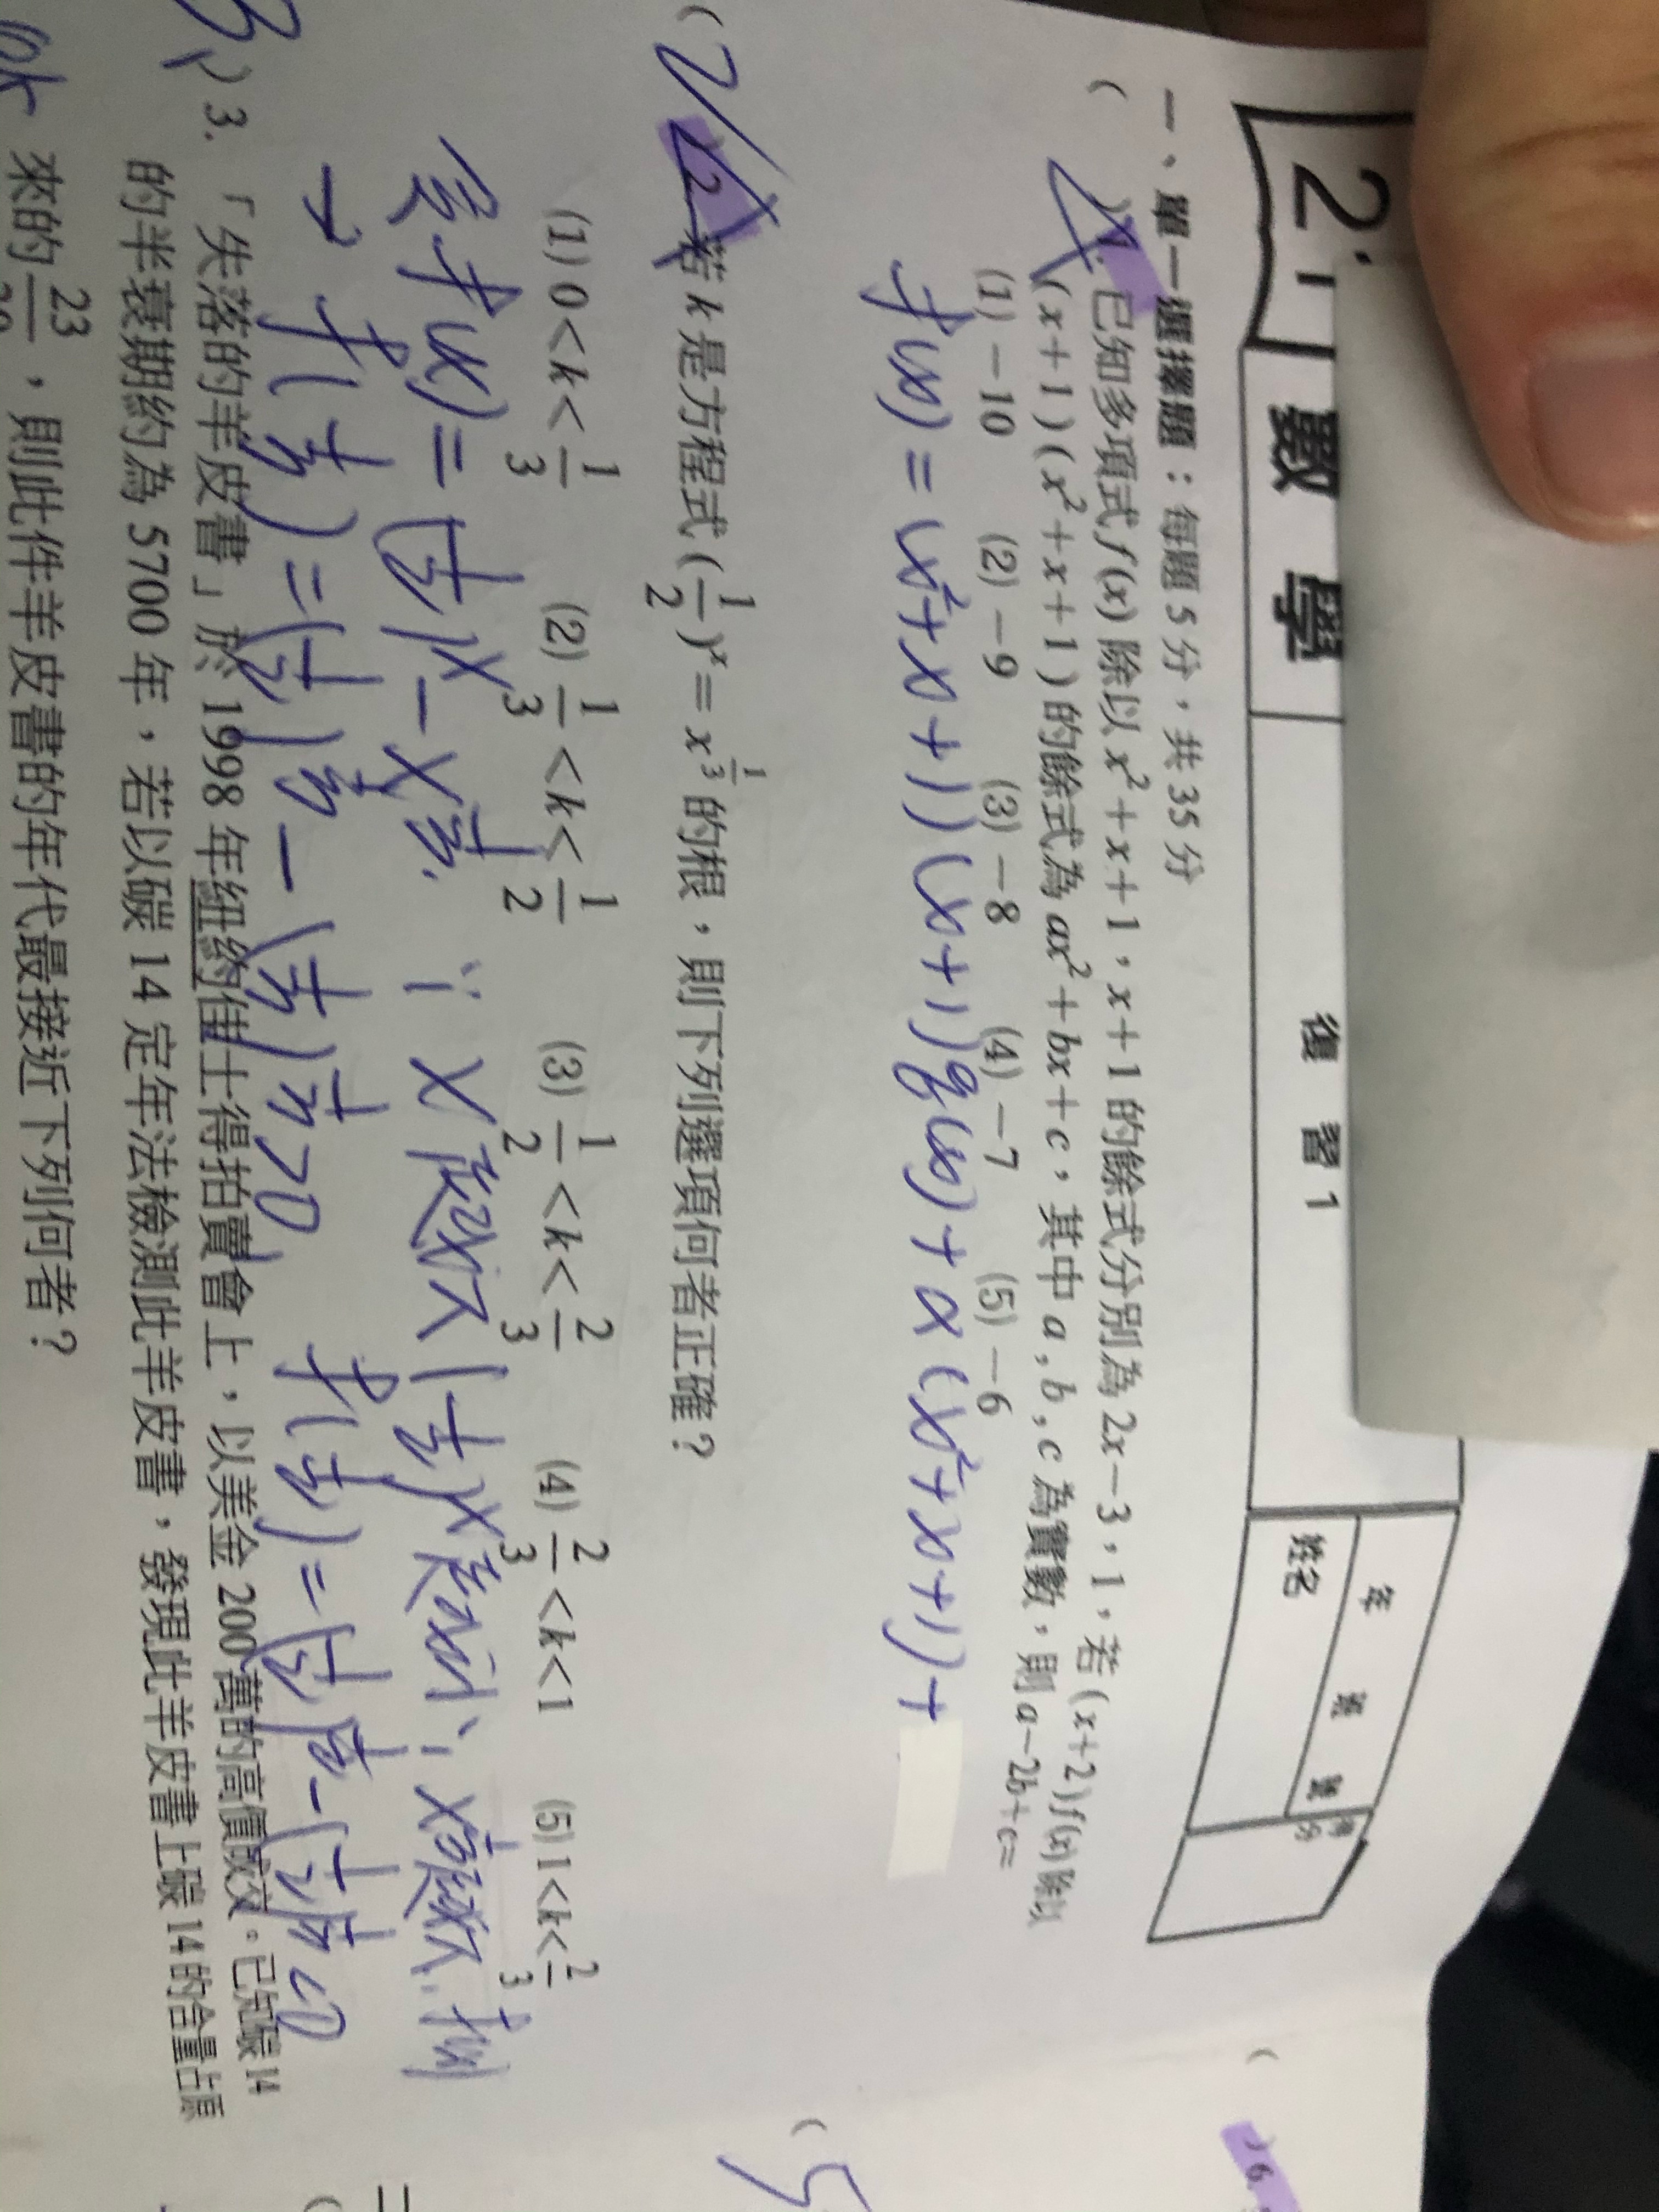 2'1 數學 復習1 年 班 號
姓名 得分
一、單一選擇題：每題5分，共35分
( )1. 已知多項式 f(x) 除以 x²+x+1，x+1 的餘式分別為 2x−3，1，若 (x+2)f(x) 除以
(x+1)(x²+x+1) 的餘式為 ax²+bx+c，其中 a,b,c 為實數，則 a−2b+c=
(1) −10 (2) −9 (3) −8 (4) −7 (5) −6
f(x) = (x²+x+1)(x+1)g(x) + a(x²+x+1)+
(2)2. 若 k 是方程式 (1/2)^x = x^(1/3) 的根，則下列選項何者正確？
(1) 0<k<1/3 (2) 1/3<k<1/2 (3) 1/2<k<2/3 (4) 2/3<k<1 (5) 1<k<2/3
f(x) = (1/2)^x − x^(1/3)
→ f(1/3) = (1/2)^(1/3) − (1/3)^(1/3) >0
( )3. 「失落的羊皮書」於 1998 年紐約佳士得拍賣會上，以美金 200 萬的高價成交。已知碳 14
的半衰期約為 5700 年，若以碳 14 定年法檢測此羊皮書，發現此羊皮書上碳 14 的含量占原
來的 23，則此件羊皮書的年代最接近下列何者？
( )6.
(5